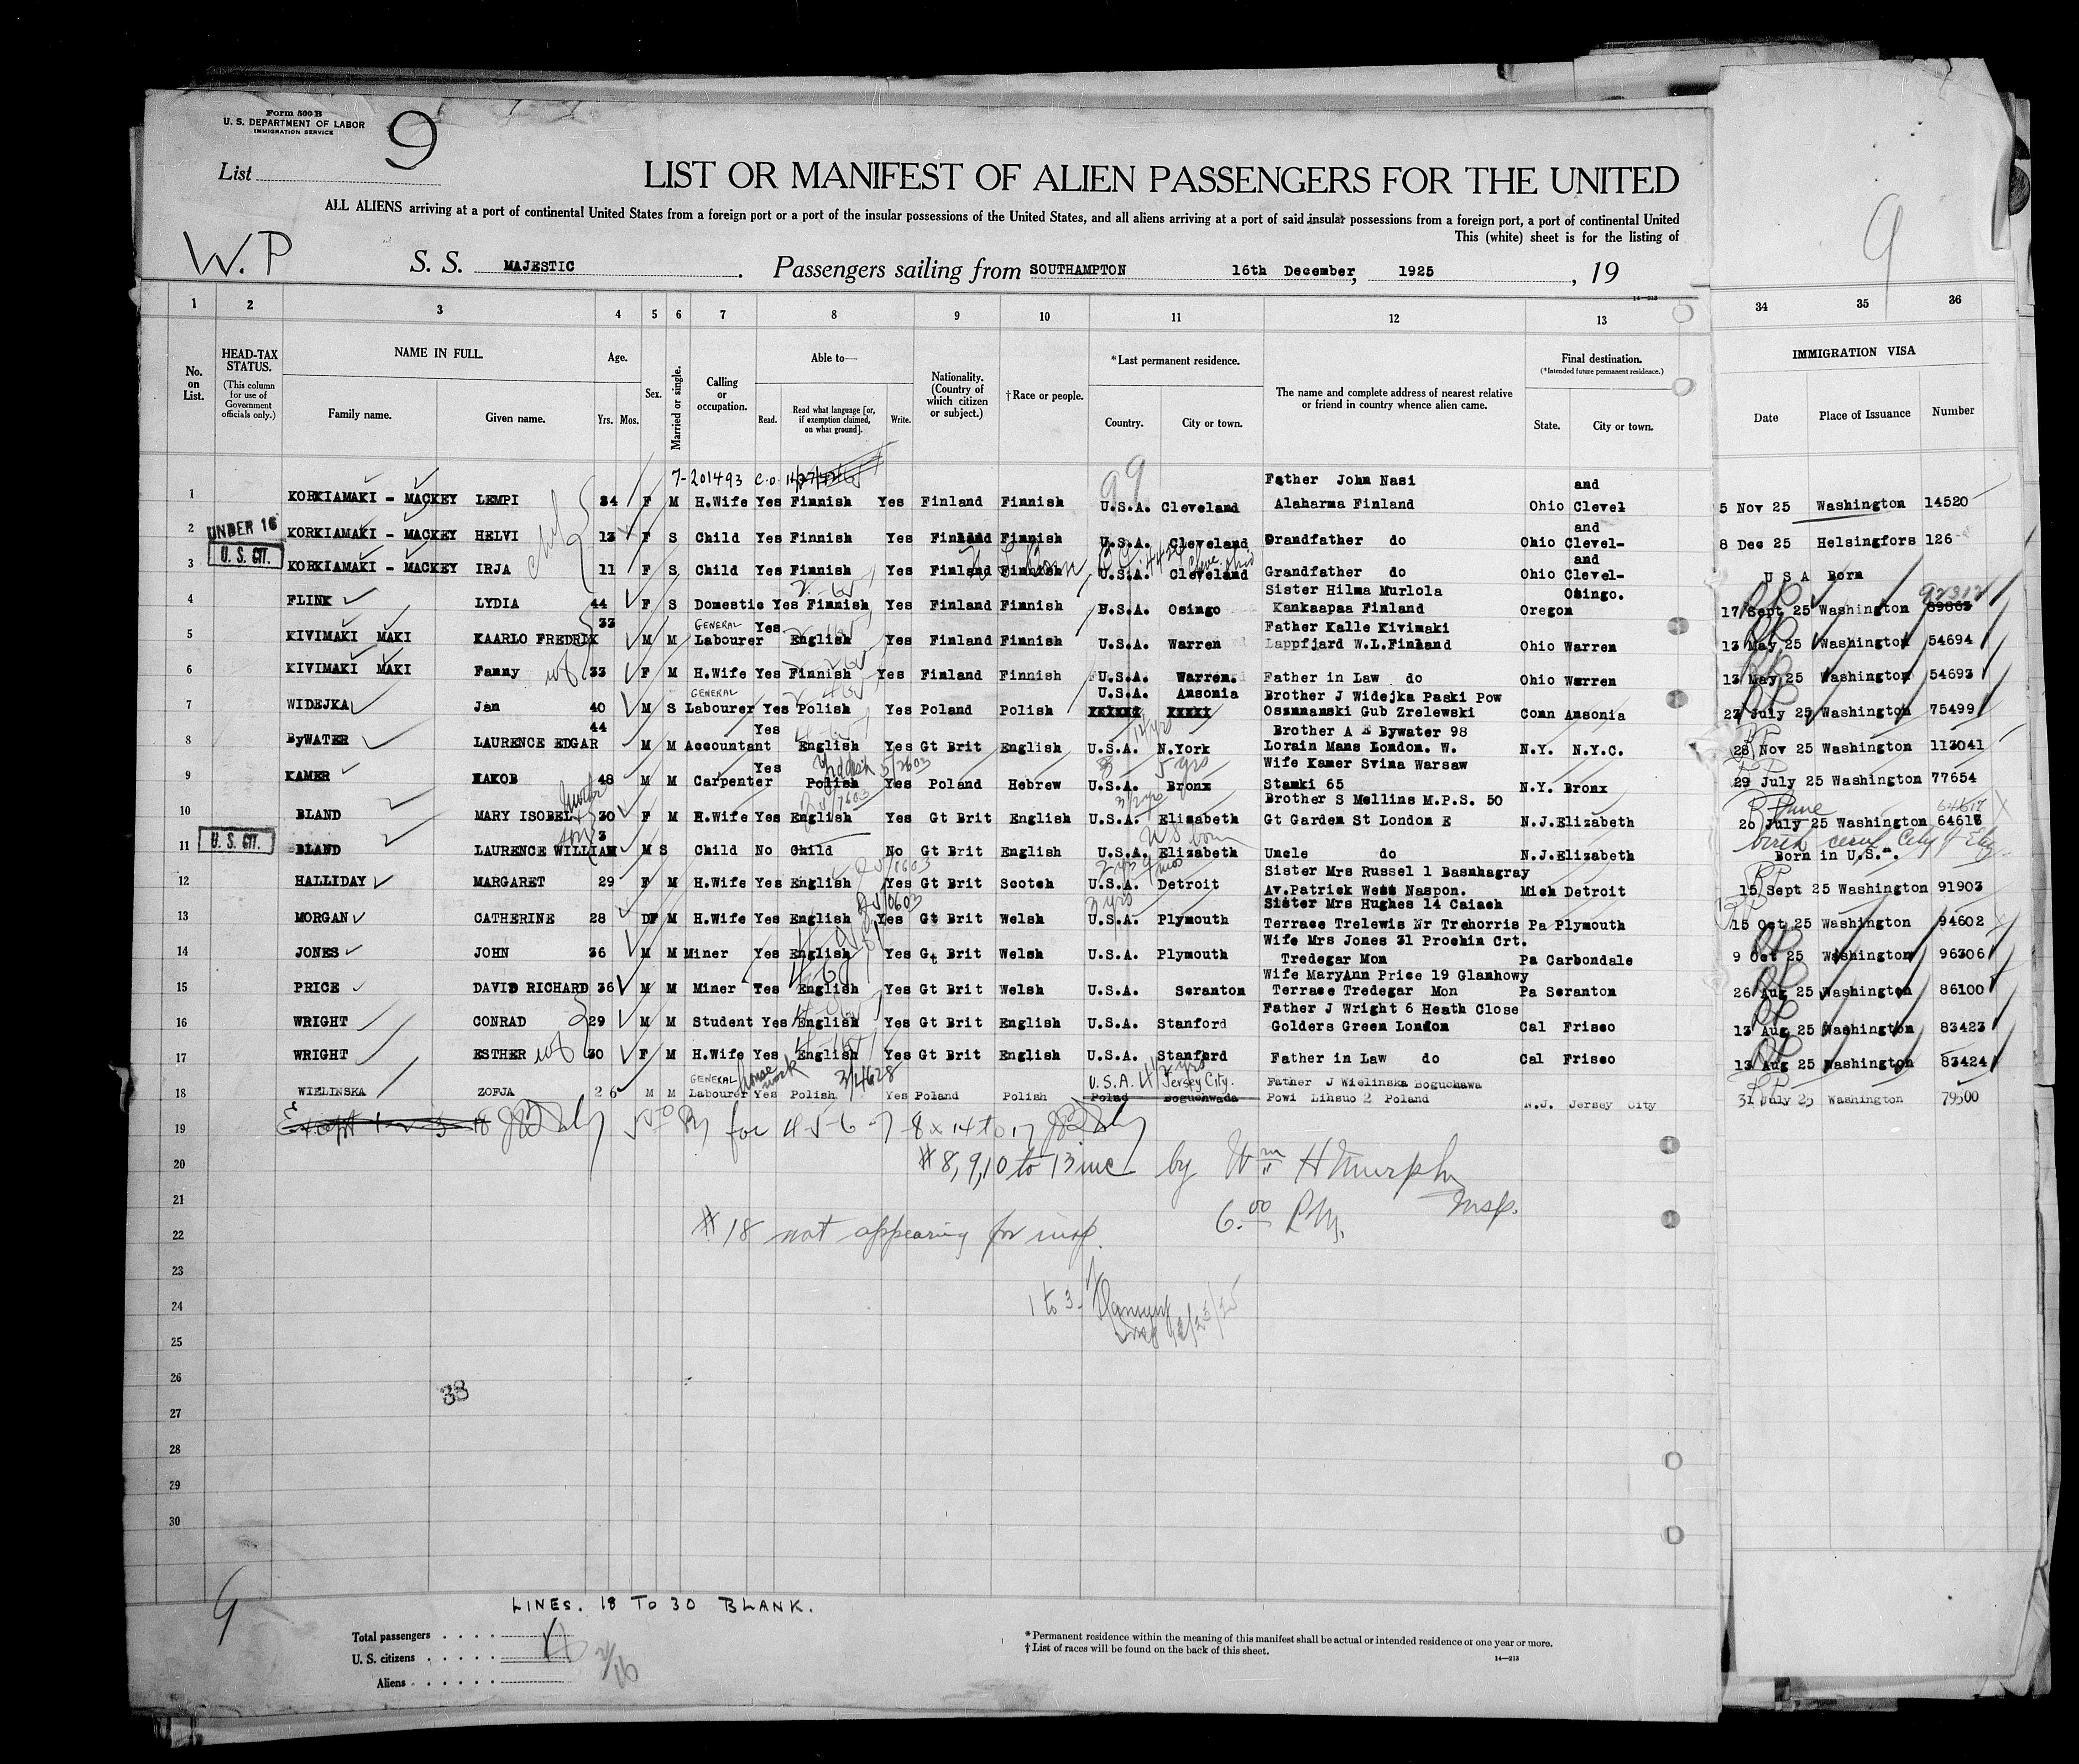 Form 500 B
U. S. DEPARTMENT OF LABOR
IMMIGRATION SERVICE
9
List
LIST OR MANIFEST OF ALIEN PASSENGERS FOR THE UNITED
ALL ALIENS arriving at a port of continental United States from a foreign port or a port of the insular possessions of the United States, and all aliens arriving at a port of said insular possessions from a foreign port, a port of continental United
This (white) sheet is for the listing of
9
W. P
S. S. MAJESTIC. Passengers sailing from SOUTHAMPTON 16th December, 1925, 19
14—213
1 2 3 4 5 6 7 8 9 10 11 12 13 34 35 36
No. on List.
HEAD-TAX STATUS.
(This column for use of Government officials only.)
NAME IN FULL.
Family name. Given name.
Age.
Yrs. Mos.
Sex.
Married or single.
Calling or occupation.
Able to—
Read. Read what language [or, if exemption claimed, on what ground]. Write.
Nationality. (Country of which citizen or subject.)
†Race or people.
*Last permanent residence.
Country. City or town.
The name and complete address of nearest relative or friend in country whence alien came.
Final destination.
(*Intended future permanent residence.)
State. City or town.
IMMIGRATION VISA
Date Place of Issuance Number
7-201493 C.O.
99
Father John Nasi and
1 KORKIAMAKI - MACKEY LEMPI 34 F M H.Wife Yes Finnish Yes Finland Finnish U.S.A. Cleveland Alaharma Finland Ohio Clevel 5 Nov 25 Washington 14520
UNDER 16
and
2 KORKIAMAKI - MACKEY HELVI 13 F S Child Yes Finnish Yes Finland Finnish U.S.A. Cleveland Grandfather do Ohio Clevel- 8 Dec 25 Helsingfors 126
U. S. CIT.
and
3 KORKIAMAKI - MACKEY IRJA 11 F S Child Yes Finnish Yes Finland Finnish U.S.A. Cleveland Grandfather do Ohio Clevel- U S A Born
Sister Hilma Murlola Osingo. 92312
4 FLINK LYDIA 44 F S Domestic Yes Finnish Yes Finland Finnish U.S.A. Osingo Kankaapaa Finland Oregon 17 Sept 25 Washington 89863
33 GENERAL Yes Father Kalle Kivimaki
5 KIVIMAKI MAKI KAARLO FREDRIK M M Labourer English Yes Finland Finnish U.S.A. Warren Lappfjard W.L.Finland Ohio Warren 13 May 25 Washington 54694
6 KIVIMAKI MAKI Fanny wf 33 F M H.Wife Yes Finnish Yes Finland Finnish U.S.A. Warren. Father in Law do Ohio Warren 13 May 25 Washington 54693
GENERAL U.S.A. Ansonia Brother J Widejka Paski Pow
7 WIDEJKA Jan 40 M S Labourer Yes Polish Yes Poland Polish Oszmanski Gub Zrelewski Conn Ansonia 23 July 25 Washington 75499
44 Yes Brother A E Bywater 98
8 ByWATER LAURENCE EDGAR M M Accountant English Yes Gt Brit English U.S.A. N.York Lorain Mans London. W. N.Y. N.Y.C. 28 Nov 25 Washington 113041
Yes Yiddish 5 yrs Wife Kamer Svina Warsaw
9 KAMER HAKOB 48 M M Carpenter Polish Yes Poland Hebrew U.S.A. Bronx Stamki 65 N.Y. Bronx 29 July 25 Washington 77654
Brother S Mellins M.P.S. 50 June
10 BLAND MARY ISOBEL 30 F M H.Wife Yes English Yes Gt Brit English U.S.A. Elizabeth Gt Garden St London E N.J.Elizabeth 20 July 25 Washington 64618
son 3 US born
U. S. CIT.
11 BLAND LAURENCE WILLIAM M S Child No Child No Gt Brit English U.S.A. Elizabeth Uncle do N.J.Elizabeth Born in U.S.A.
Sister Mrs Russel 1 Basnhagray
12 HALLIDAY MARGARET 29 F M H.Wife Yes English Yes Gt Brit Scotch U.S.A. Detroit Av.Patrick West Naspon. Mich Detroit 15 Sept 25 Washington 91903
3 yrs Sister Mrs Hughes 14 Caiach
13 MORGAN CATHERINE 28 F M H.Wife Yes English Yes Gt Brit Welsh U.S.A. Plymouth Terrace Trelewis Nr Trehorris Pa Plymouth 15 Oct 25 Washington 94602
Wife Mrs Jones 31 Prochin Crt.
14 JONES JOHN 36 M M Miner Yes English Yes Gt Brit Welsh U.S.A. Plymouth Tredegar Mon Pa Carbondale 9 Oct 25 Washington 96306
Wife MaryAnn Price 19 Glanhowy
15 PRICE DAVID RICHARD 36 M M Miner Yes English Yes Gt Brit Welsh U.S.A. Scranton Terrace Tredegar Mon Pa Scranton 26 Aug 25 Washington 86100
Father J Wright 6 Heath Close
16 WRIGHT CONRAD 29 M M Student Yes English Yes Gt Brit English U.S.A. Stanford Golders Green London Cal Frisco 13 Aug 25 Washington 83423
17 WRIGHT ESTHER wf 30 F M H.Wife Yes English Yes Gt Brit English U.S.A. Stanford Father in Law do Cal Frisco 13 Aug 25 Washington 83424
GENERAL house work 3/4628 U.S.A. Jersey City.
18 WIELINSKA ZOFJA 26 M M Labourer Yes Polish Yes Poland Polish Poland Boguchwada Father J Wielinska Boguchawa Powi Lihsuo 2 Poland N.J. Jersey City 31 July 25 Washington 79500
19 for 4 5-6-7-8 x 14 to 17
20 #8, 9, 10 to 13 inc by Wm H Murphy
21 Insp.
6.00 P.M.
22 #18 not appearing for insp.
23
24 1 to 3.
25
26
38
27
28
29
30
9
LINES. 18 TO 30 BLANK.
Total passengers
U. S. citizens
Aliens
* Permanent residence within the meaning of this manifest shall be actual or intended residence of one year or more.
† List of races will be found on the back of this sheet.
14—213